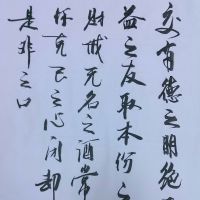 交有德之朋绝无
益之友取本份之
财戒无名之酒常
怀克己之心闭却
是非之口